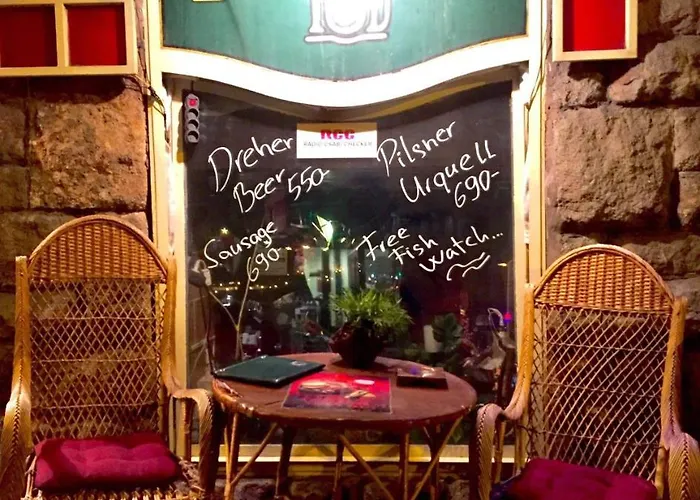 RCC
RADIO CABS CHECKER
Dreher
Beer 550-
Pilsner
Urquell
690-
Sausage
690-
Free
Fish
watch...